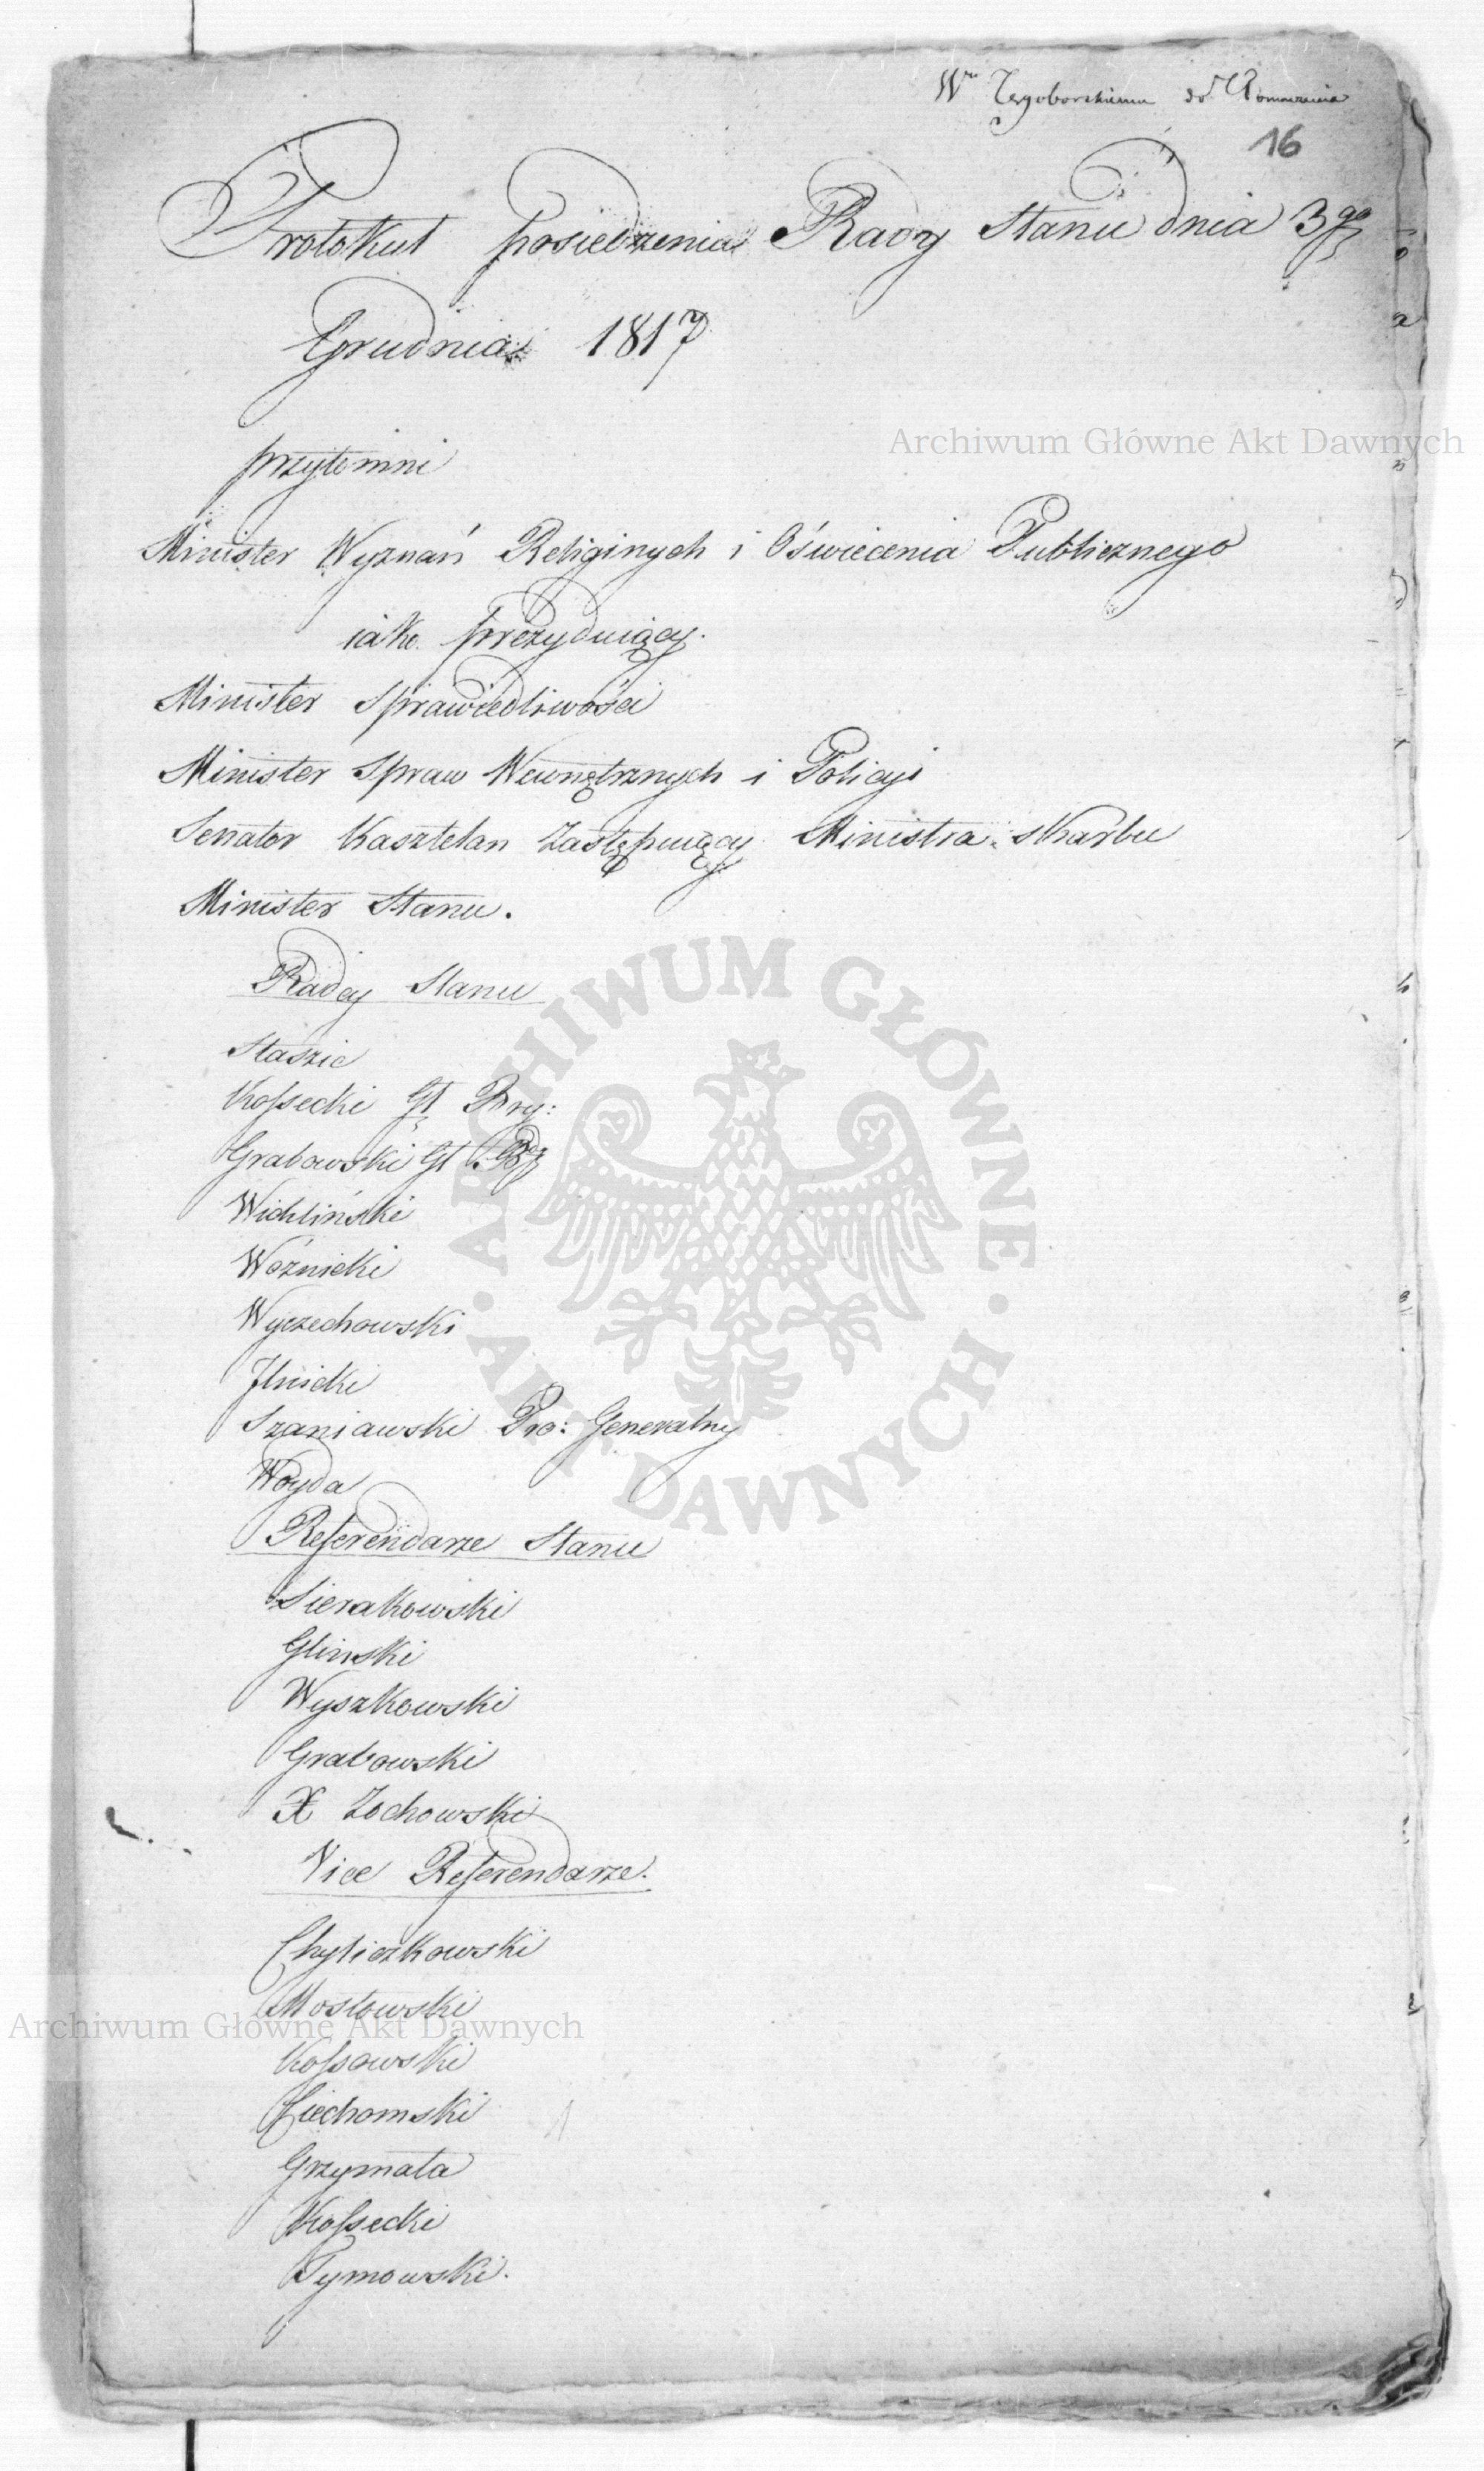 Wu Tęgoborskiemu do
16
Protokuł posiedzenia Rady Stanu dnia 3go
Grudnia 1817
przytomni
Minister Wyznań Religinych i Oświecenia Publicznego
iako prezyduiący.
Minister Sprawiedliwości
Minister Spraw Wewnętrznych i Policyi
Senator Kasztelan Zastępuiący Ministra Skarbu
Minister Stanu.
Radcy Stanu
Staszic
Kossecki Gł Bry:
Grabowski Gł
Wichliński
Woźnicki
Wyczechowski
Ilnicki
Szaniawski Pro: Generalny
Woyda
Referendarze Stanu
Sierakowski
Gliński
Wyszkowski
Grabowski
X Zochowski
Vice Referendarze.
Chyliczkowski
Mostowski
Kossowski
Ciechomski
Grzymała
Kossecki
Tymowski.
Archiwum Główne Akt Dawnych
ARCHIWUM GŁÓWNE
AKT DAWNYCH
Archiwum Główne Akt Dawnych